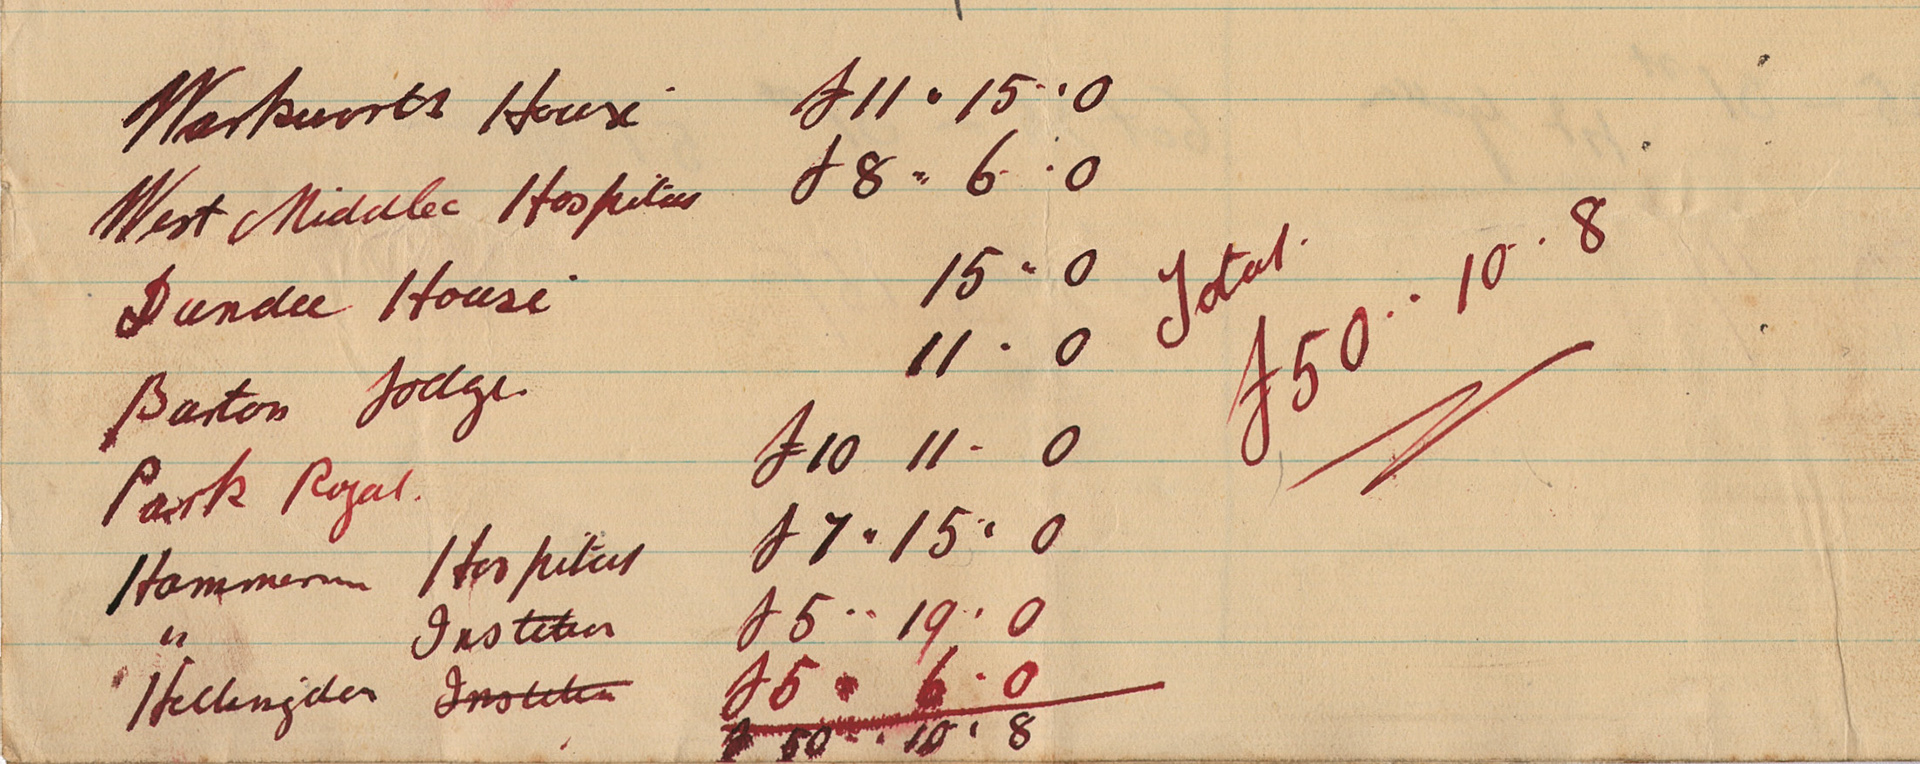 Warkworth House £11 " 15 " 0
West Middlec Hospital £8 " 6 " 0
Dundee House 15 " 0
Barton Lodge. 11 " 0
Park Royal. £10 11 - 0
Hospital £7 " 15 " 0
" £5 " 19 " 0
£5 " 6 " 0
£ 50 " 10 " 8
Total.
£50 " 10 " 8